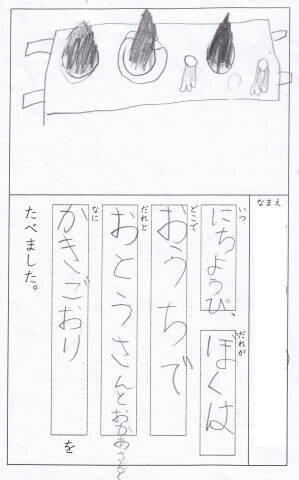 なまえ
いつ
にちようび、
だれが
ぼくは
どこで
おうちで
だれと
おとうさんとおかあさんと
なに
かきごおり
を
たべました。